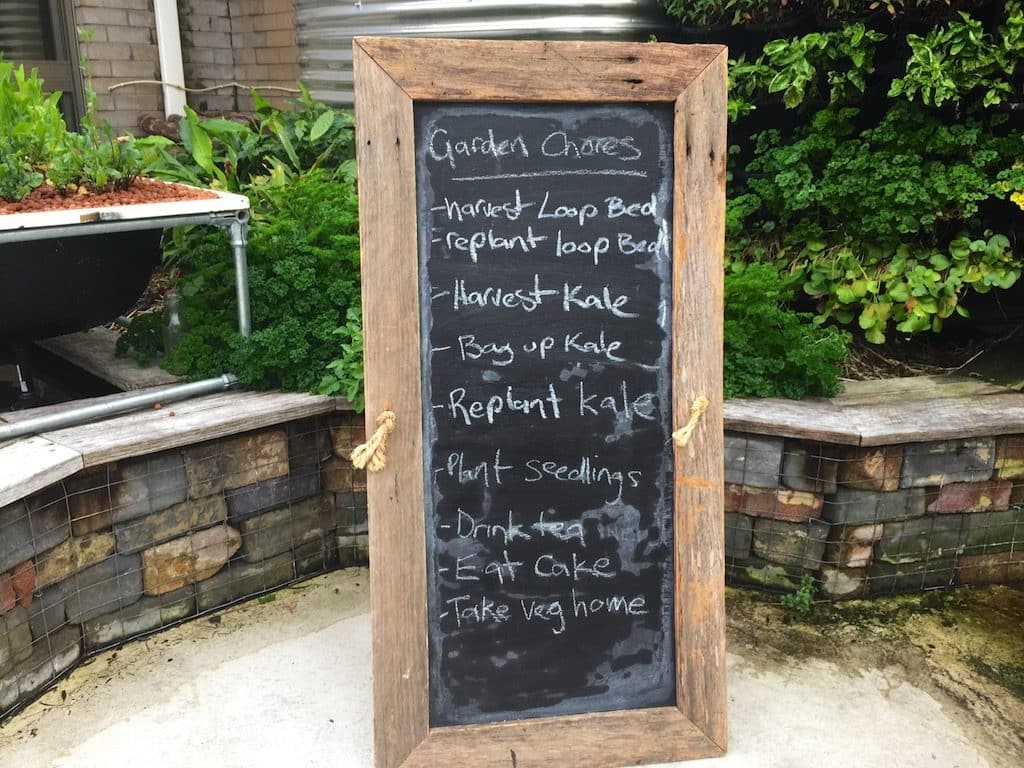 Garden Chores
-harvest Loop Bed
-replant loop Bed
-Harvest Kale
-Bag up Kale
-Replant kale
-Plant seedlings
-Drink tea
-Eat Cake
-Take veg home